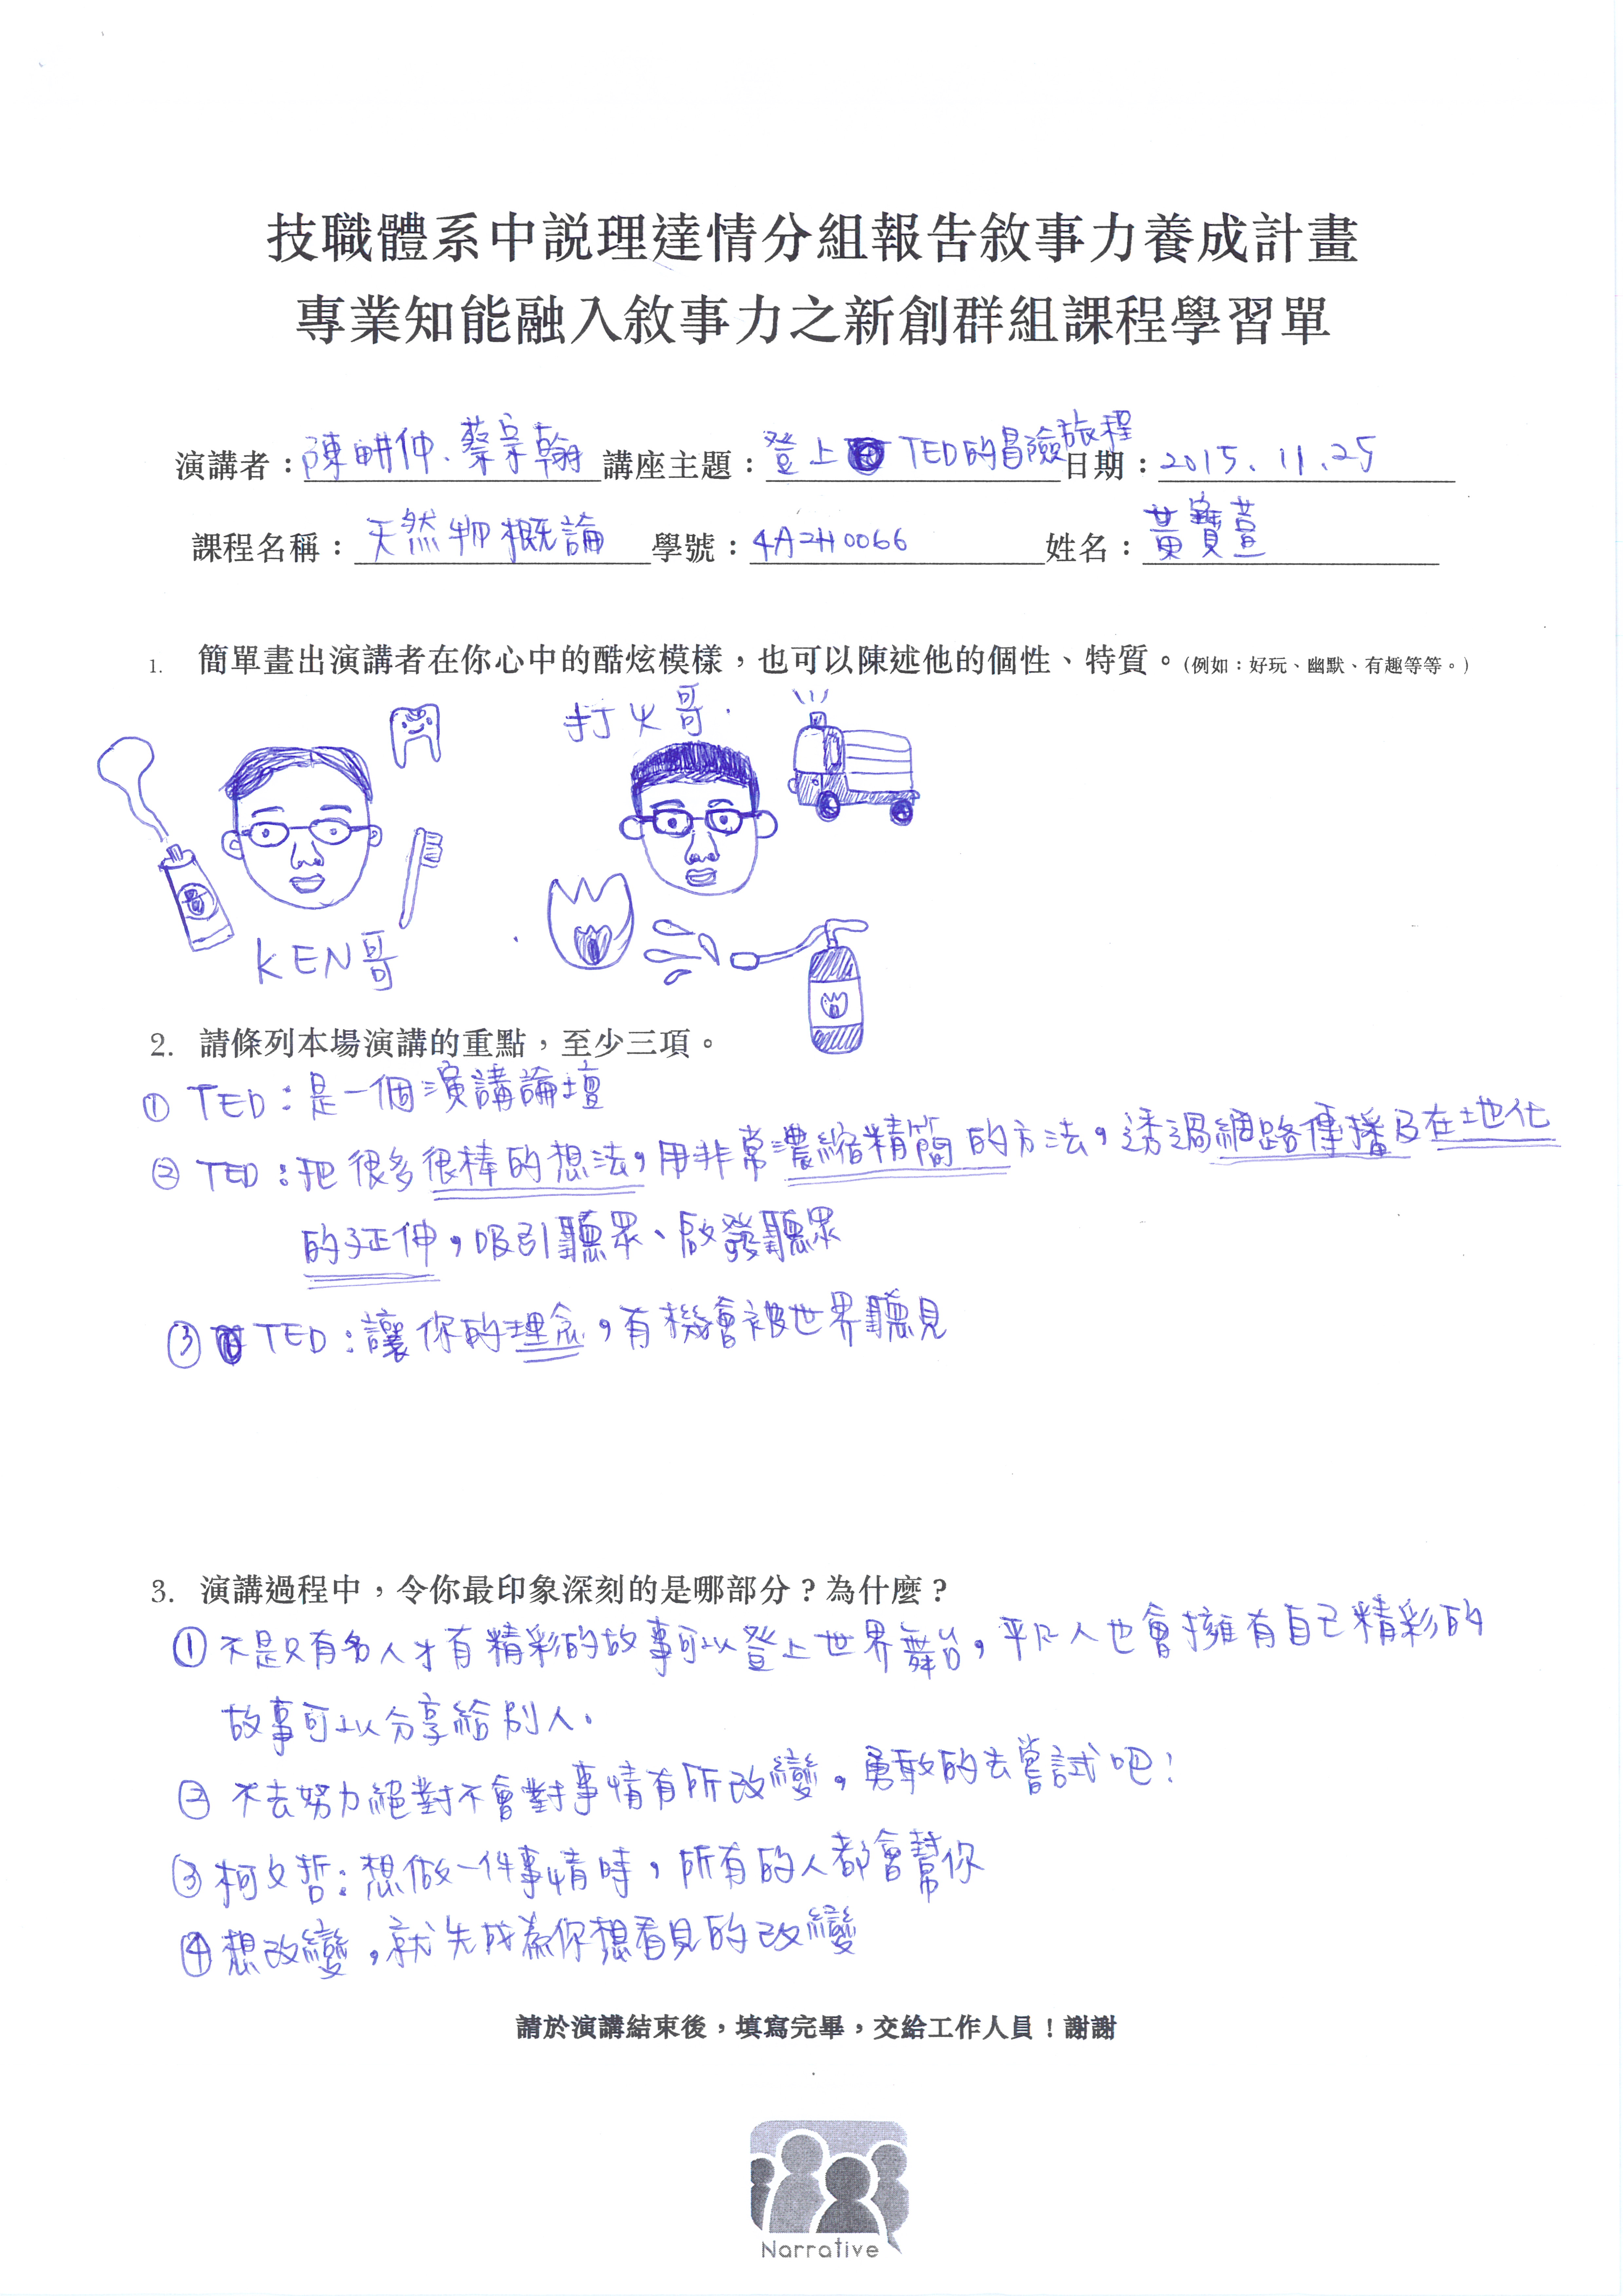 技職體系中説理達情分組報告敘事力養成計畫
專業知能融入敘事力之新創群組課程學習單
演講者：陳畊仲．蔡宗翰 講座主題：登上 TED的冒險旅程 日期：2015. 11. 25
課程名稱：天然物概論 學號：4A2H0066 姓名：黃寶萱
1. 簡單畫出演講者在你心中的酷炫模樣，也可以陳述他的個性、特質。(例如：好玩、幽默、有趣等等。)
打火哥．
哥
KEN哥
2. 請條列本場演講的重點，至少三項。
① TED：是一個演講論壇
② TED：把很多很棒的想法，用非常濃縮精簡的方法，透過網路傳播及在地化
的延伸，吸引聽眾、啟發聽眾
③ TED：讓你的理念，有機會被世界聽見
3. 演講過程中，令你最印象深刻的是哪部分？為什麼？
① 不是只有名人才有精彩的故事可以登上世界舞台，平凡人也會擁有自己精彩的
故事可以分享給別人。
② 不去努力絕對不會對事情有所改變，勇敢的去嘗試吧！
③ 柯文哲：想做一件事情時，所有的人都會幫你
④ 想改變，就先成為你想看見的改變
請於演講結束後，填寫完畢，交給工作人員！謝謝
Narrative